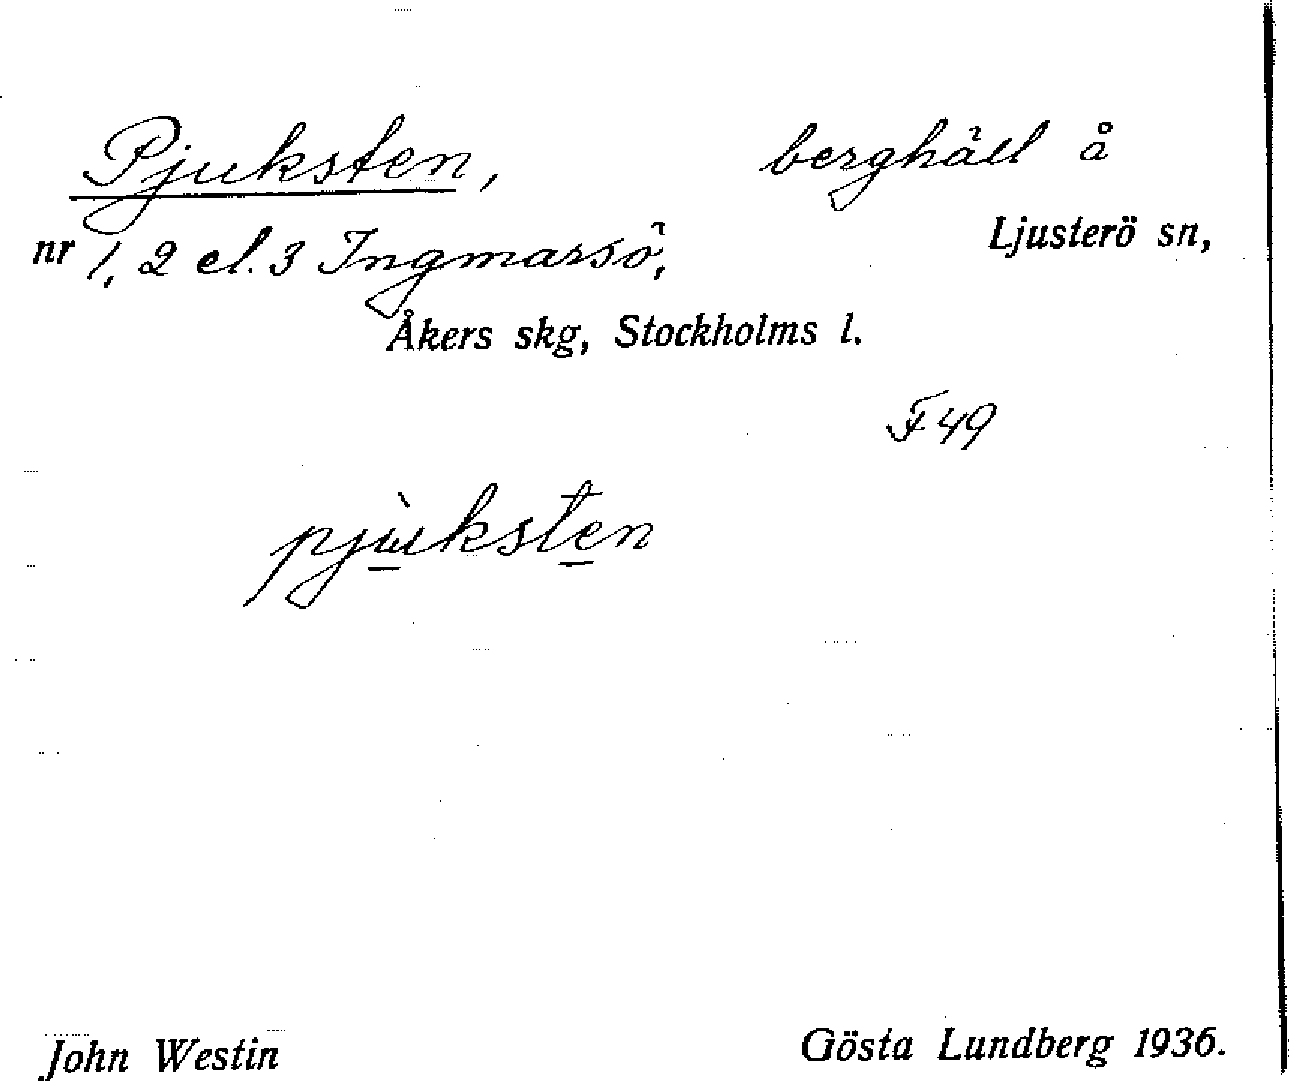 Pjuksten, berghäll å
Ljusterö sn,
nr 1, 2 el. 3 Ingmarsö,
Åkers skg, Stockholms l.
F 49
pjùksten
John Westin Gösta Lundberg 1936.